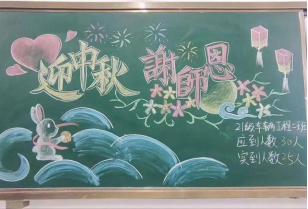 迎中秋 謝師恩
21级车辆工程一班
应到人数 30人
实到人数 25人